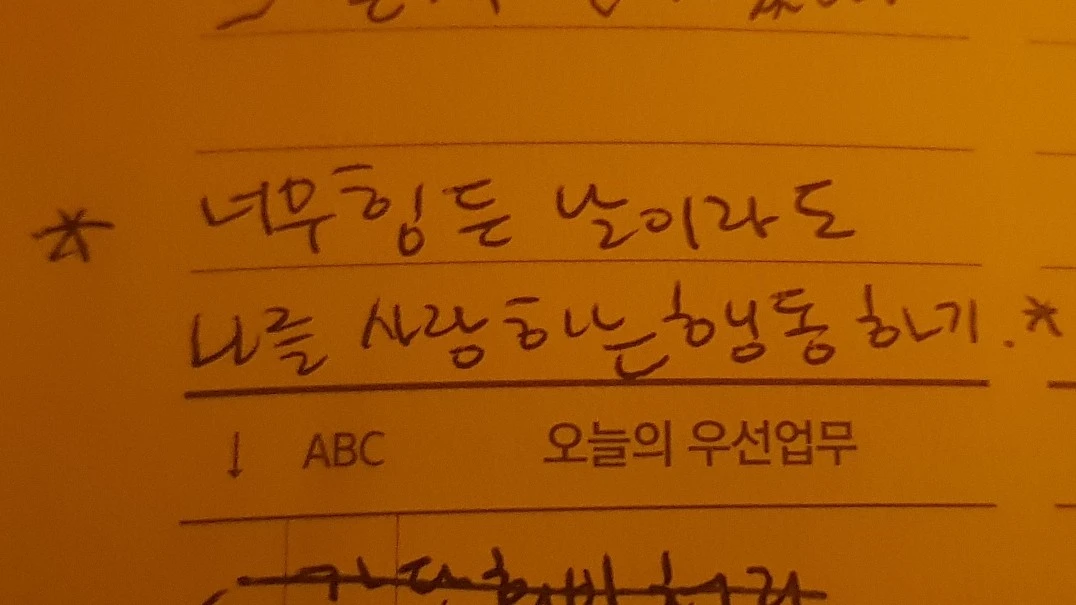 * 너무 힘든 날이라도
나를 사랑하는 행동하기. *
↓ ABC 오늘의 우선업무